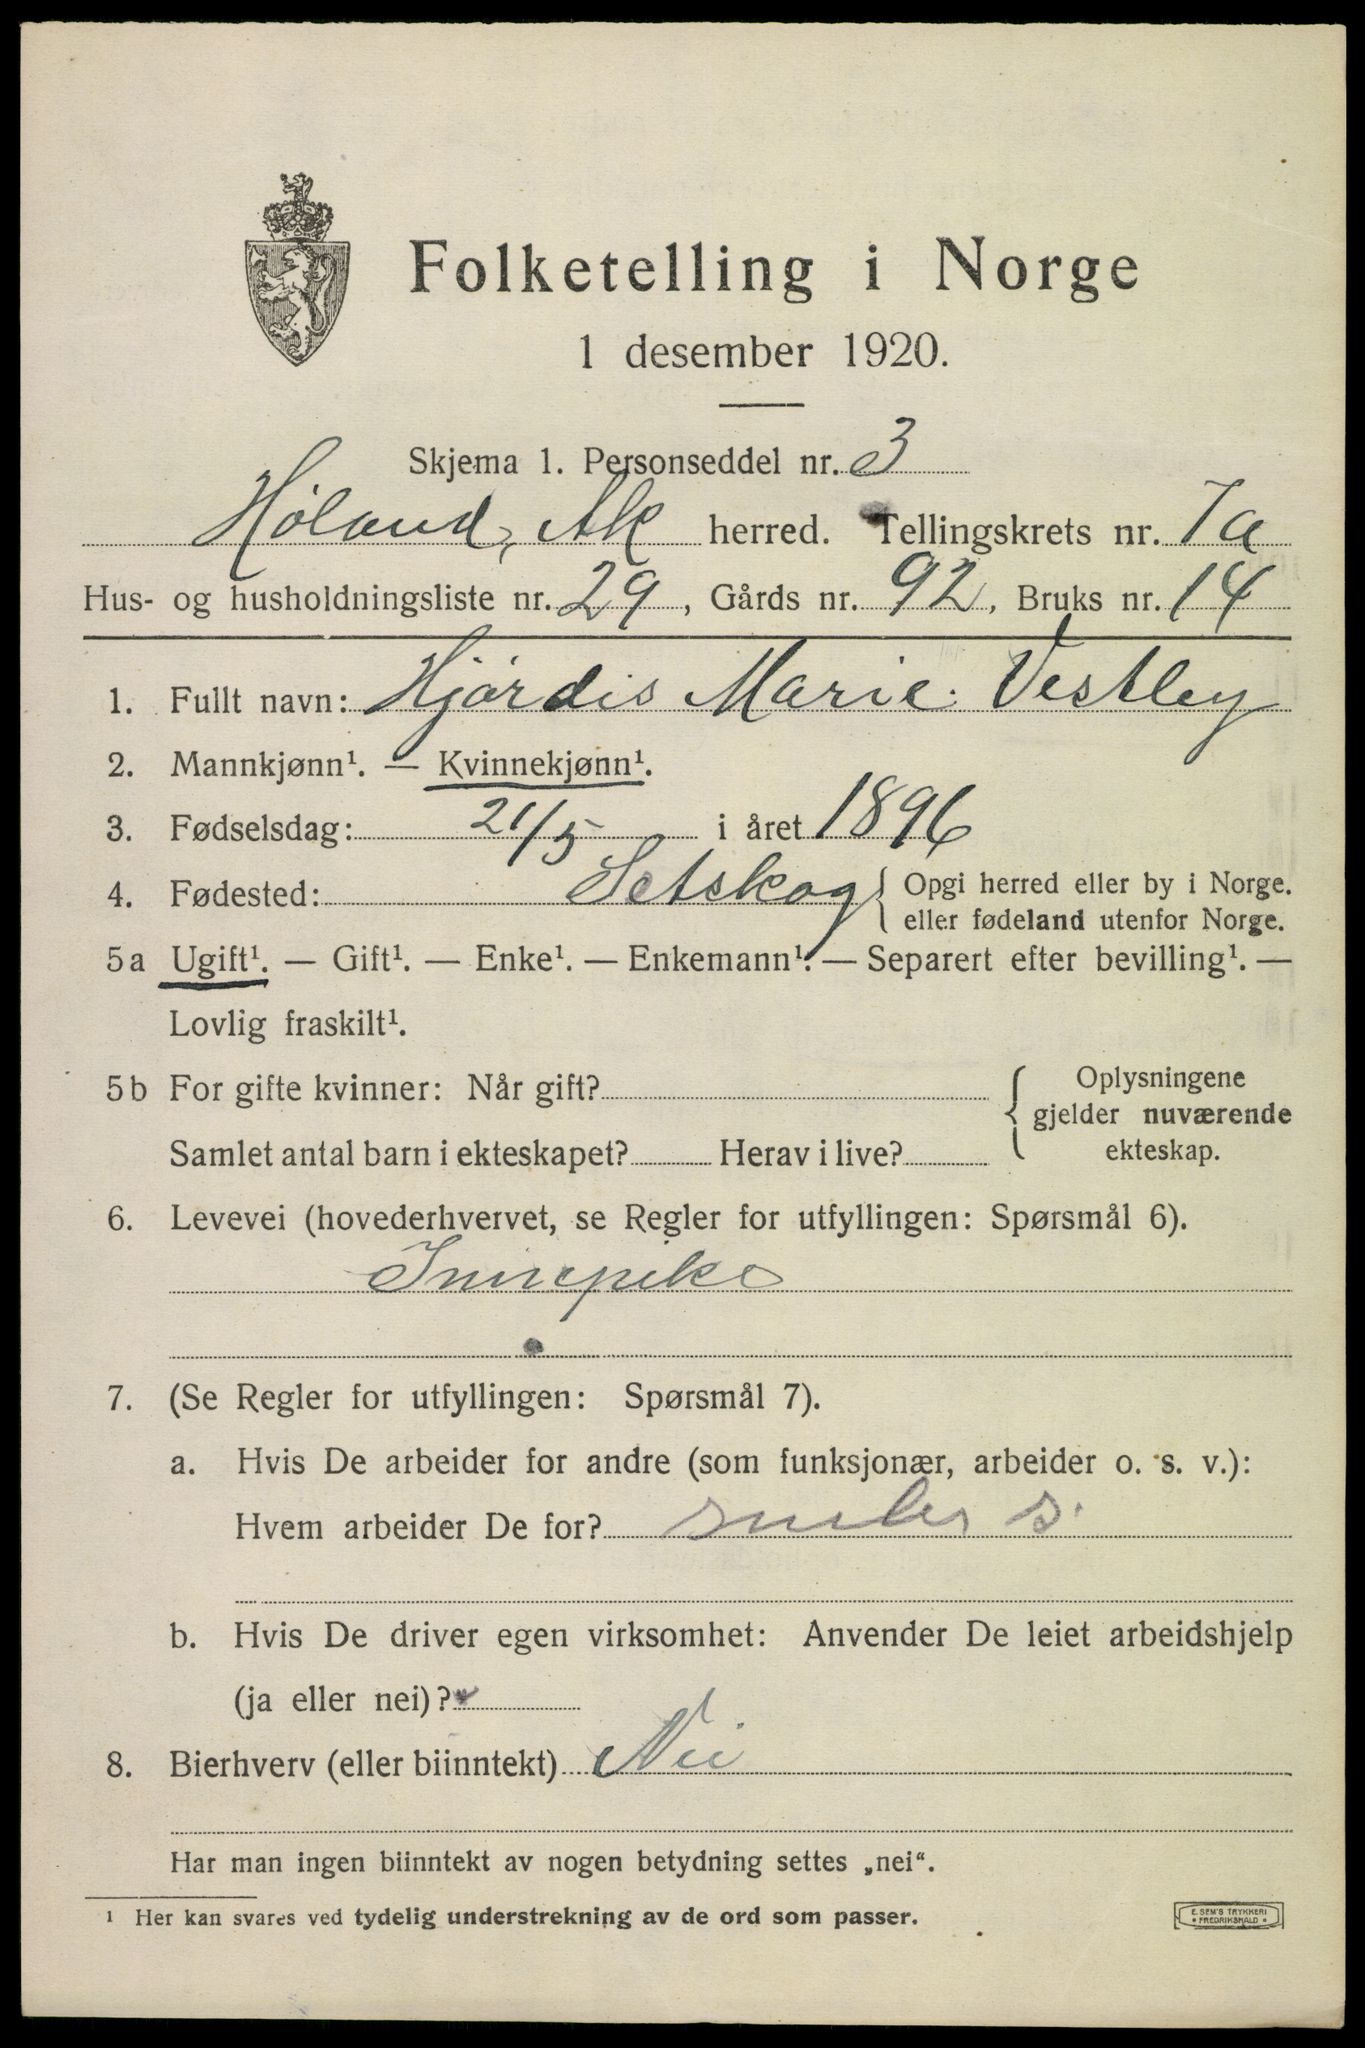 Folketelling i Norge
1 desember 1920.
Skjema 1. Personseddel nr. 3
Høland, Ak herred. Tellingskrets nr. 7a
Hus- og husholdningsliste nr. 29, Gårds nr. 92, Bruks nr. 14
1. Fullt navn: Hjørdis Marie Vestley
2. Mannkjønn¹. — Kvinnekjønn¹.
3. Fødselsdag: 21/5 i året 1896
4. Fødested: Setskog { Opgi herred eller by i Norge.
eller fødeland utenfor Norge.
5a Ugift¹. — Gift¹. — Enke¹. — Enkemann¹. — Separert efter bevilling¹. —
Lovlig fraskilt¹.
5b For gifte kvinner: Når gift? { Oplysningene
gjelder nuværende
ekteskap.
Samlet antal barn i ekteskapet? Herav i live?
6. Levevei (hovederhvervet, se Regler for utfyllingen: Spørsmål 6).
Innepike
7. (Se Regler for utfyllingen: Spørsmål 7).
a. Hvis De arbeider for andre (som funksjonær, arbeider o. s. v.):
Hvem arbeider De for?
b. Hvis De driver egen virksomhet: Anvender De leiet arbeidshjelp
(ja eller nei)?
8. Bierhverv (eller biinntekt) Nei
Har man ingen biinntekt av nogen betydning settes „nei“.
¹ Her kan svares ved tydelig understrekning av de ord som passer.
E. SEM'S TRYKKERI
* FREDRIKSHALD *